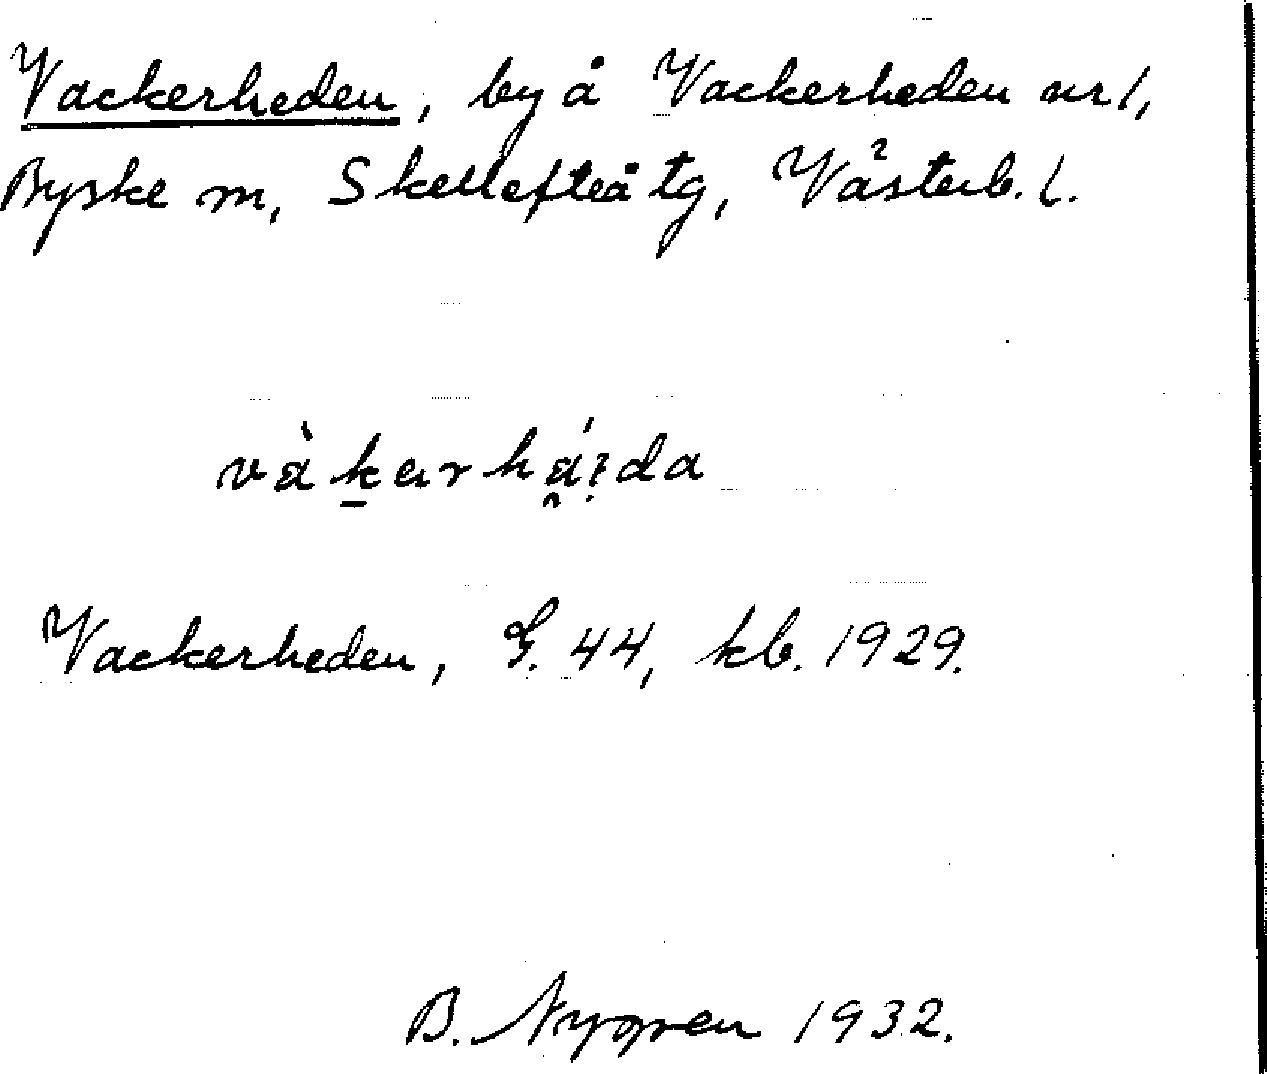 Vackerheden, by å Vackerheden nr 1,
Byske m, Skellefteå tg, Västerb. l.
vàkarhá:da
Vackerheden, G. 44, kb. 1929.
B. Nygren 1932.